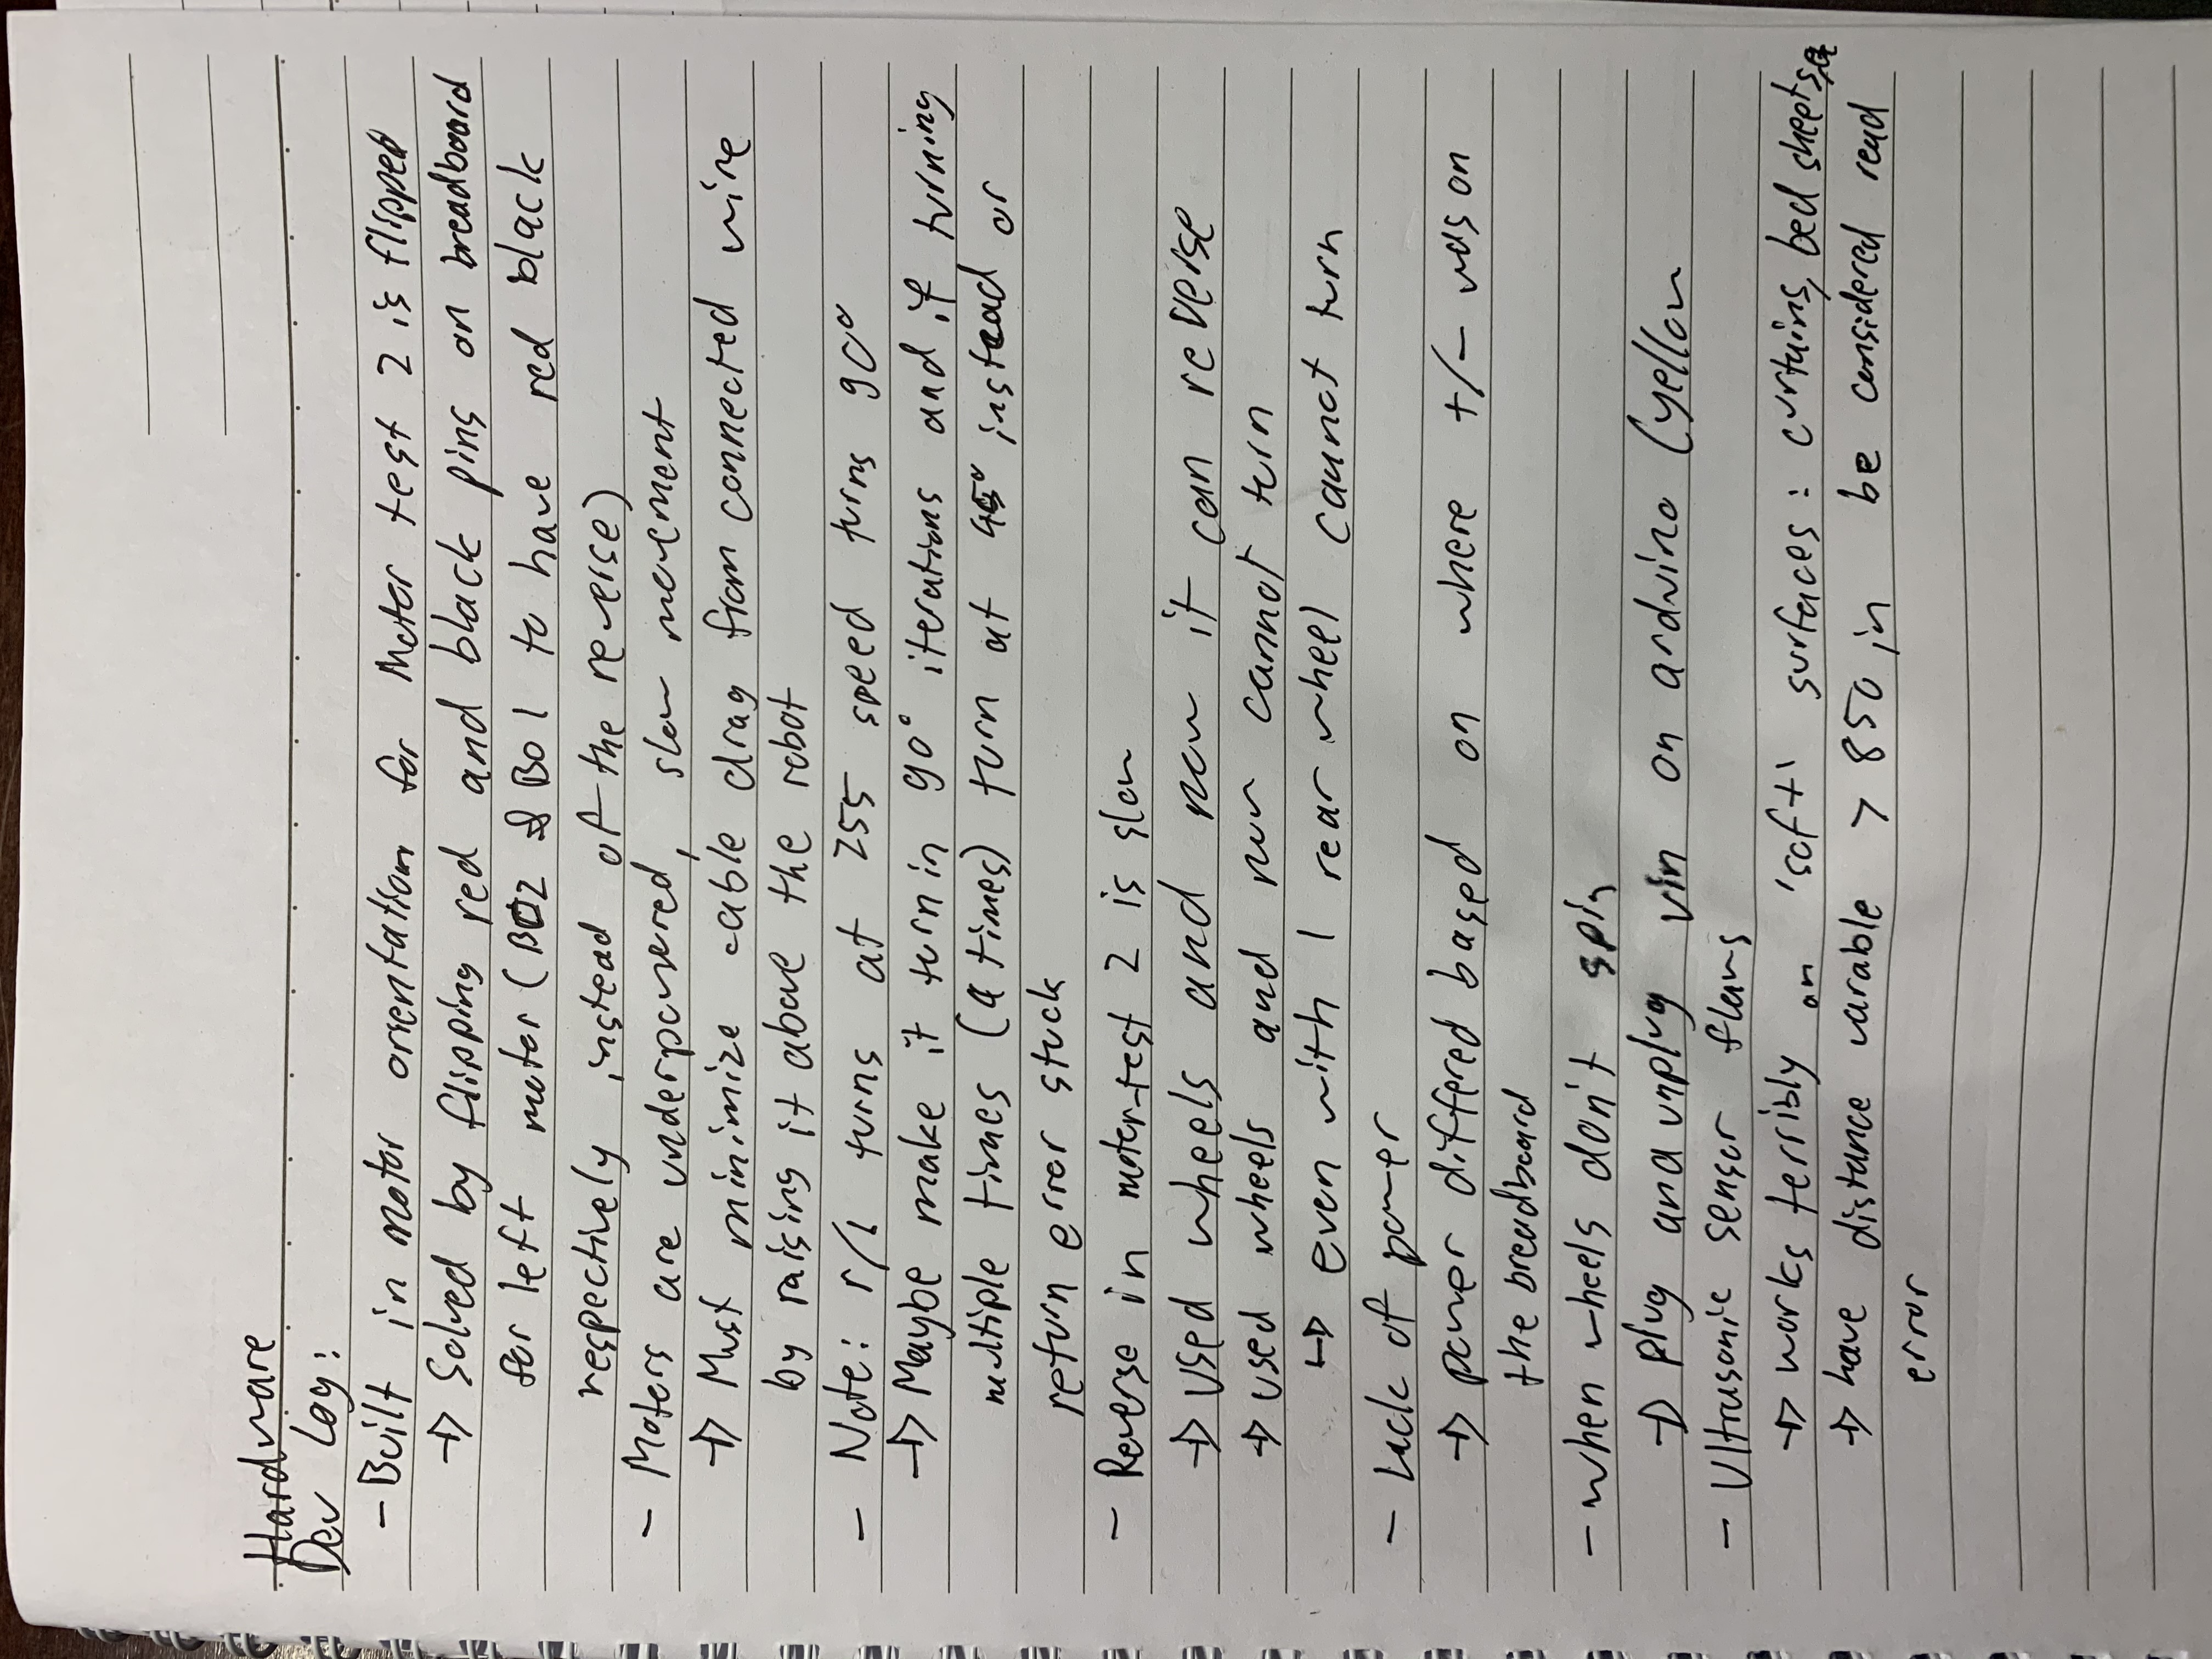 Hardware
Dev Log:
- Built in motor orientation for Motor test 2 is flipped
→ Solved by flipping red and black pins on breadboard
for left motor (BO2 & BO1 to have red black
respectively instead of the reverse)
- Motors are underpowered, slow movement
→ Must minimize cable drag from connected wire
by raising it above the robot
- Note: r/l turns at 255 speed turns 90°
→ Maybe make it turn in 90° iterations and if turning
multiple times ( times) turn at 45° instead or
return error stuck
- Reverse in motor-test 2 is slow
→ used wheels and now it can reverse
→ used wheels and now cannot turn
↳ even with 1 rear wheel cannot turn
- Lack of power
→ power differed based on where +/- was on
the breadboard
- when wheels don't spin
→ plug and unplug vin on arduino (yellow
- Ultrasonic sensor flaws
→ works terribly on 'soft' surfaces: curtains, bed sheets,
→ have distance varable > 850 in be considered read
error